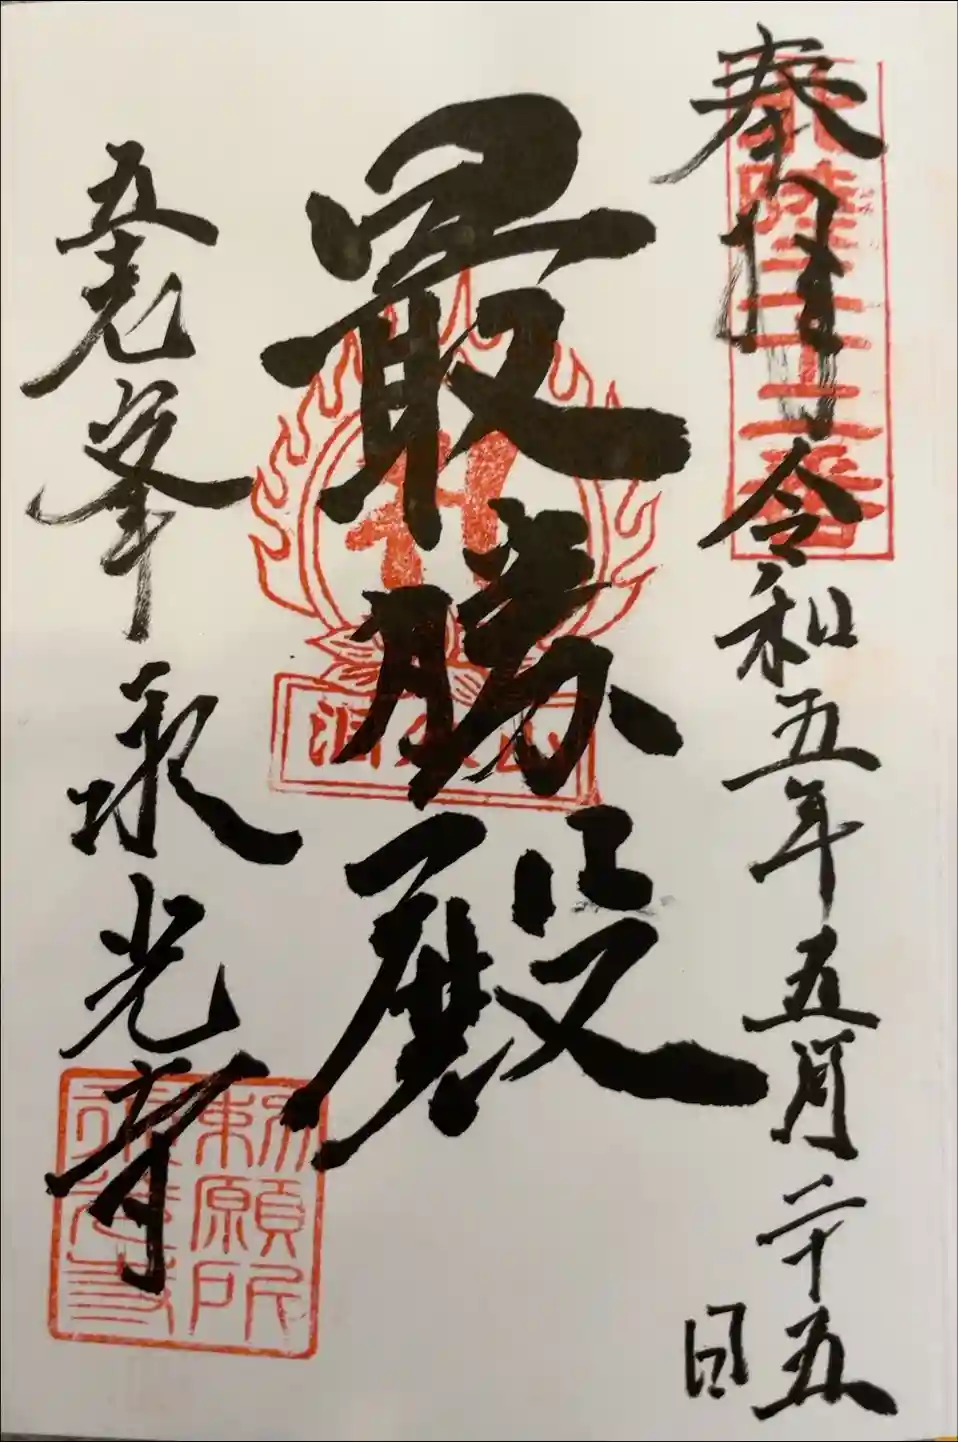 奉拝 令和五年五月二十五日
北陸三十三番
最勝殿
五老峯 永光寺
勅願所
永光寺